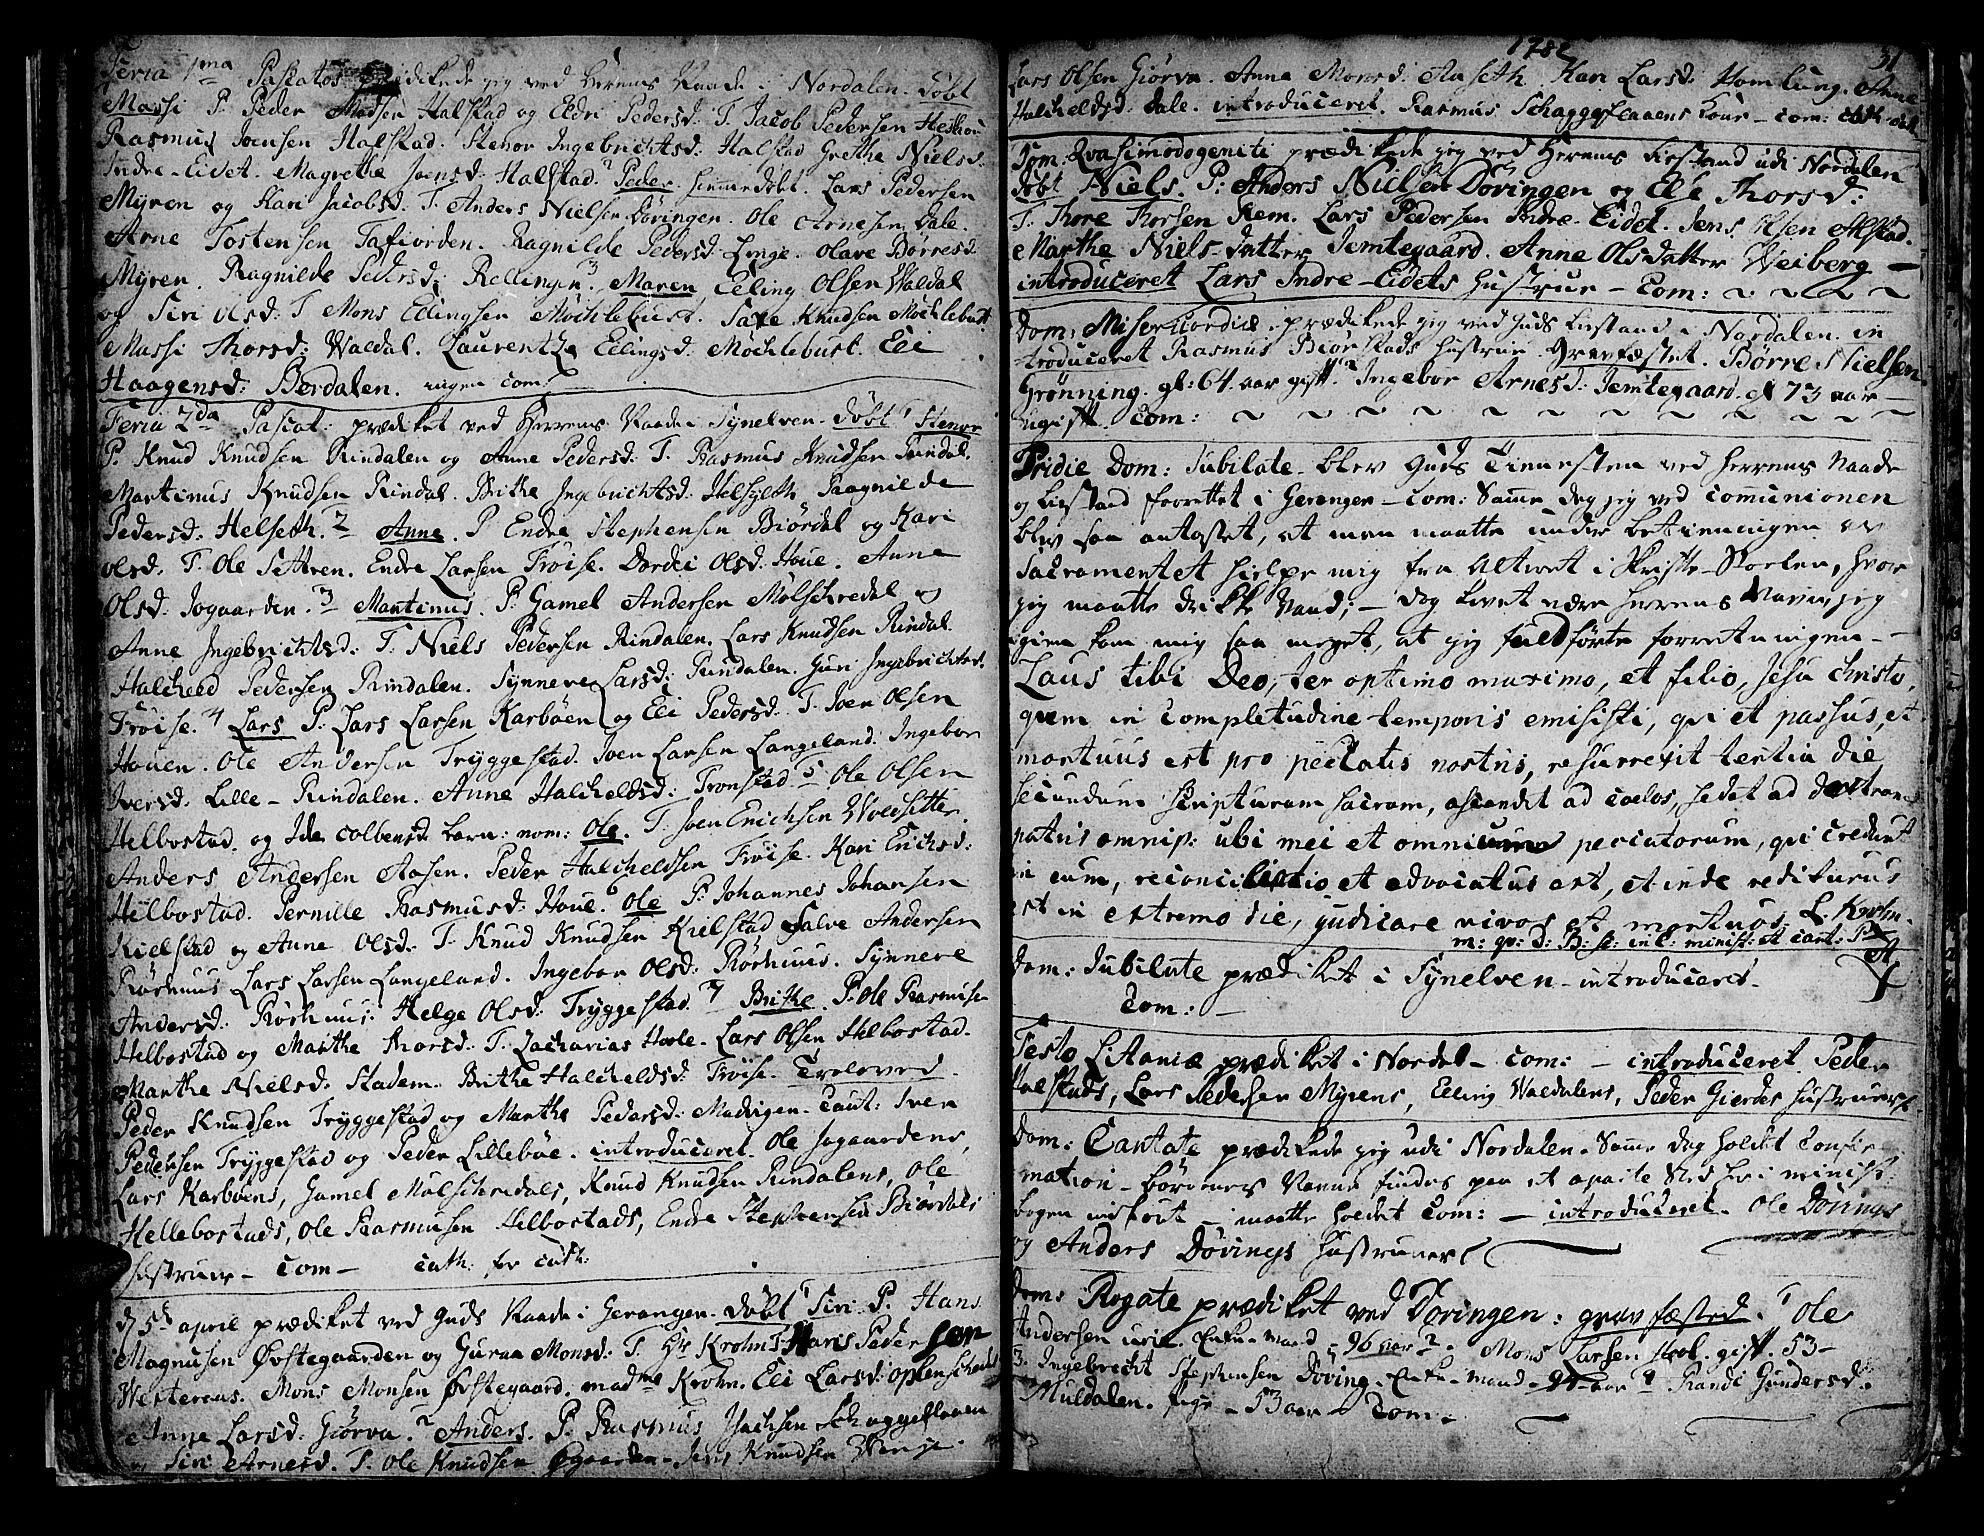 Feria 1ma Pascatos prædikede jeg ved Herrens Naade i Nordalen. døbt
Massi P. Peder Madsen Halstad og Eldri Pedersd: T. Jacob Pedersen
Rasmus Joensen Halstad. Stenor Ingebrichtsd: Halstad Grethe Nielsd:
Indre-Eidet. Magrethe Joensd: Halstad. 2 Peder. hiemmedøbt. Lars Pedersen
Myren og Kari Jacobsd: T. Anders Nielsen Döringen. Ole Arnesen Dale.
Arne Tostensen Tafiorden. Ragnilde Pedersd: Linge. Olave Börresd:
Myren. Ragnilde Pedersd: Rellingen. 3 Maren Elling Olsen Waldal
og Siri Olsd: T Mons Ellingsen Möchlebust. Saxe Knudsen Möchlebust
Massi Thorsd: Waldal. Laurentze Ellingsd: Möchlebust. Eli
Haagensd: Berdalen. ingen com:
Feria 2da Pascat: prædiket ved Herrens Naade i Synelven. døbt 1 Stenor
P. Knud Knudsen Rindalen og Anne Pedersd: T. Rasmus Knudsen Rindal.
Martinus Knudsen Rindal. Brithe Ingebrichtsd: Ragnilde
Pedersd: Helseth. 2 Anne. P Endre Stephensen Biördal og Kari
Olsd. T. Ole Sættren. Endre Larsen Fröise. Dordi Olsd. Houe. Anne
Olsd. Jogaarden. 3 Martinus. P. Gamel Andersen Mölschredal og
Anne Ingebrichtsd: T. Niels Pedersen Rindalen. Lars Knudsen Rindal.
Halcheld Pedersen Rindalen. Synneve Larsd: Rindalen. Guri Ingebrichtsd.
Fröise. 4 Lars P: Lars Larsen Karböen og Eli Pedersd. T. Joen Olsen
Houen. Ole Andersen Tryggestad. Joen Larsen Langeland. Ingebor
Iversd. Lille-Rindalen. Anne Halcheldsd: Tronstad. 5 Ole Olsen
Helbostad. og Ide Colbensd. barn: nom: Ole. T. Joen Erichsen Woldsetter.
Anders Andersen Aasen. Peder Halcheldsen Fröise. Kari Erichsd:
Hylbostad. Pernille Rasmusd: Houe. 6 Ole P: Johannes Johansen
Kielstad og Anne Olsd: T. Knud Knudsen Kielstad Salve Andersen
Rörhuus Lars Larsen Langeland. Ingebor Olsd: Rörhuus. Synneve
Andersd: Rörhuus. Helge Olsd: Tryggestad. 7 Brithe. P. Ole Rasmusen
Helbostad og Marthe Thorsd: T. Zacharias Hoele. Lars Olsen Helbostad.
Marthe Nielsd: Stadem. Brithe Halcheldsd: Fröise. Troloved.
Peder Knudsen Tryggestad og Marthe Pedersd: Madvigen. Caut: Iver
Pedersen Tryggestad og Peder Lilleböe. introduceret. Ole Jogaardens,
Lars Karböens, Gamel Mölschredals, Knud Knudsen Rindalens, Ole
Hellebostads, Ole Rasmusen Helbostads, Endre Stephensen Biördals
hustruer- com- cath: for cath:
D 5t april prædiket ved Guds Naade i Gerangen. døbt 1 Siri P. Hans
Magnusen Øvstegaarden og Guraa Monsd: T. Hr Krohn Haris Pedersen
Westeraas. Mons Monsen Øvstegaard. madme Krohn. Eli Larsd: Oplenschedet
Anne Larsd: Giörva. 2 Anders. P. Rasmus Isachsen Schaggeflaaen
og Siri Arnesd. T. Ole Knudsen Øgaarden. Jens Knudsen Wenje.
1782 31
Lars Olsen Giörva. Anne Monsd: Aaseth. Kari Larsd: Homlung. Anne
Halcheldsd. Dale. introduceret. Rasmus Schaggeflaaens Kone - com:
Dom. Qvasimodogeniti prædikede jeg ved Herrens bistand udi Nordalen
døbt Niels. P: Anders Nielsen Döringen og Eli Thorsd:
T. Thore Thorsen Rem. Lars Pedersen Indre-Eidet. Jens Olsen Alstad.
Marthe Niels-datter Jemtegaard. Anne Olsdatter Weiberg -
introduceret Lars Indre-Eidets hustrue - Com:
Dom. Misericordiæ prædikede jeg ved Guds bistand i Nordalen. in
troduceret Rasmus Biörstads hustrue. Gravfæstet. Börre Nielsen
Grönning. gl: 64 aar gift. 2 Ingebor Arnesd: Jemtegaard. 73 aar -
ugift. Com:
Pridie Dom: Jubilate. blev Guds Tienesten ved Herrens Naade
og bistand forrettet i Gerangen - com: Samme dag jeg ved Comunionen
blev saa antastet, at man maatte under betieningen av
Sacramentet hielpe mig fra Alteret i Skrifte-Stoelen, hvor
jeg maatte drikke Vand; - dog lovet være Herrens Navn, jeg
igien kom mig saa meget, at jeg fuldförte forretningen - -
Laus tibi Deo, ter optimo maximo, et filio, Jesu Christo,
quem in completudine temporis emisisti, qui et passus, et
mortuus est pro peccatis nostris, resurrexit tertia die
secundum scripturam sacram, ascendet ad coelos, sedet ad dextram
patris omnip: ubi mei et omnium peccatorum, qui credunt
in eum, reconciliatio et advocatus est, et inde rediturus
est in extremo die, judicare vivos et mortuos. L. Krohn.
m: qv: D: B:
Dom: Jubilate prædiket i Synelven - introduceret -
Com: -
Festo Litaniæ prædiket i Nordal - com: - introduceret Peder
Halstads, Lars Pedersen Myrens, Elling Waldalens, Peder Gierdes hustruer
Dom: Cantate prædikede jeg udi Nordalen. Samme dag holdt Confir
mation - börnenes Navne findes paa et aparte Sted her i minist:
bogen indfört - maatte holdet com: - introduceret. Ole Dörings
og Anders Dövings hustruer
Dom: Rogate prædiket ved Doringen: gravfæsted. 1 Ole
Andersen Uri. Enke-mand - 96 aar 2. Mons Larsen gift. 53 -
3. Ingebrecht Stephensen Döving. Enke-mand - aar Randi Gundersd:
Muldalen. pige - 53 aar - Com: